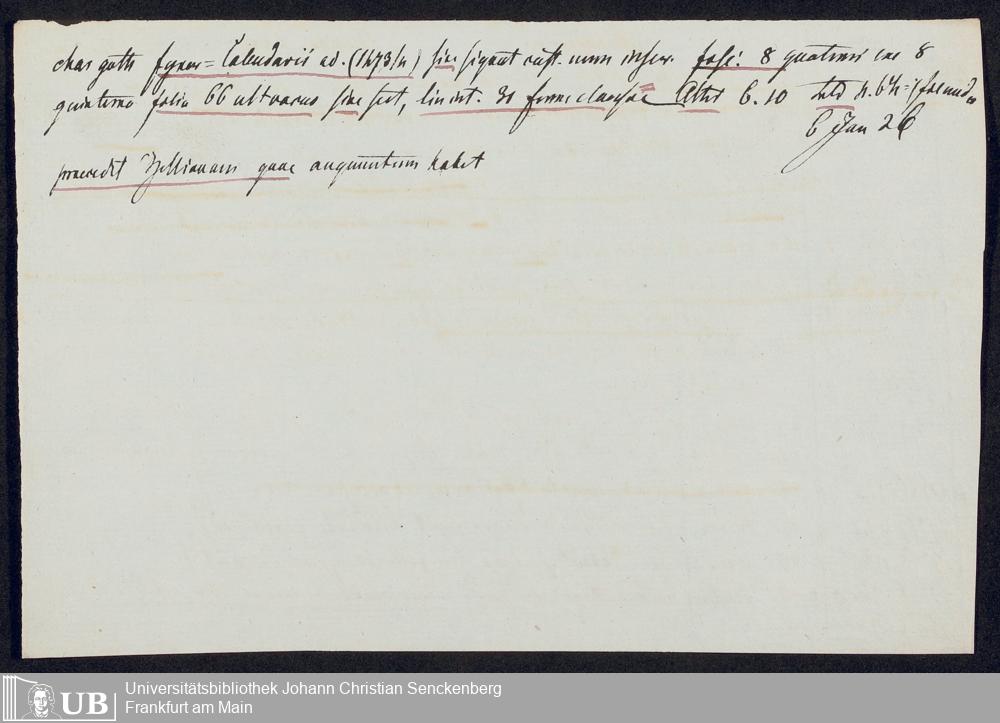 char goth Calendarii ed. (1473/4) sine signat cust. num inser. fasc: 8 quaterni ex 8
quinterno folia 66 ult vacuo sine sect, lin int. 30 forme clausae Altit 6.10 Latd 4.
6 Jan 26
praecedit Zellianam quae augmentum habet
UB Universitätsbibliothek Johann Christian Senckenberg
Frankfurt am Main